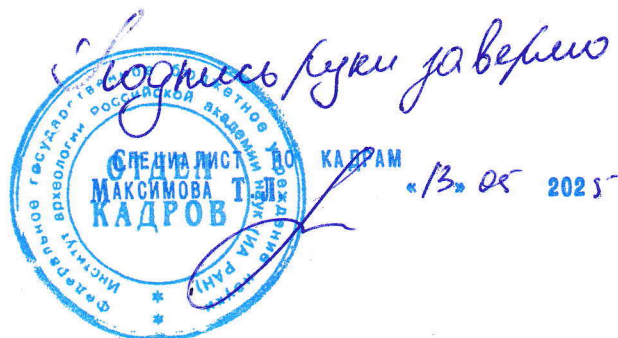 Подпись руки заверяю
Федеральное государственное бюджетное учреждение науки
Институт археологии Российской академии наук (ИА РАН)
ОТДЕЛ
КАДРОВ
СПЕЦИАЛИСТ ПО КАДРАМ
МАКСИМОВА Т.Л.
«13» 05 2025